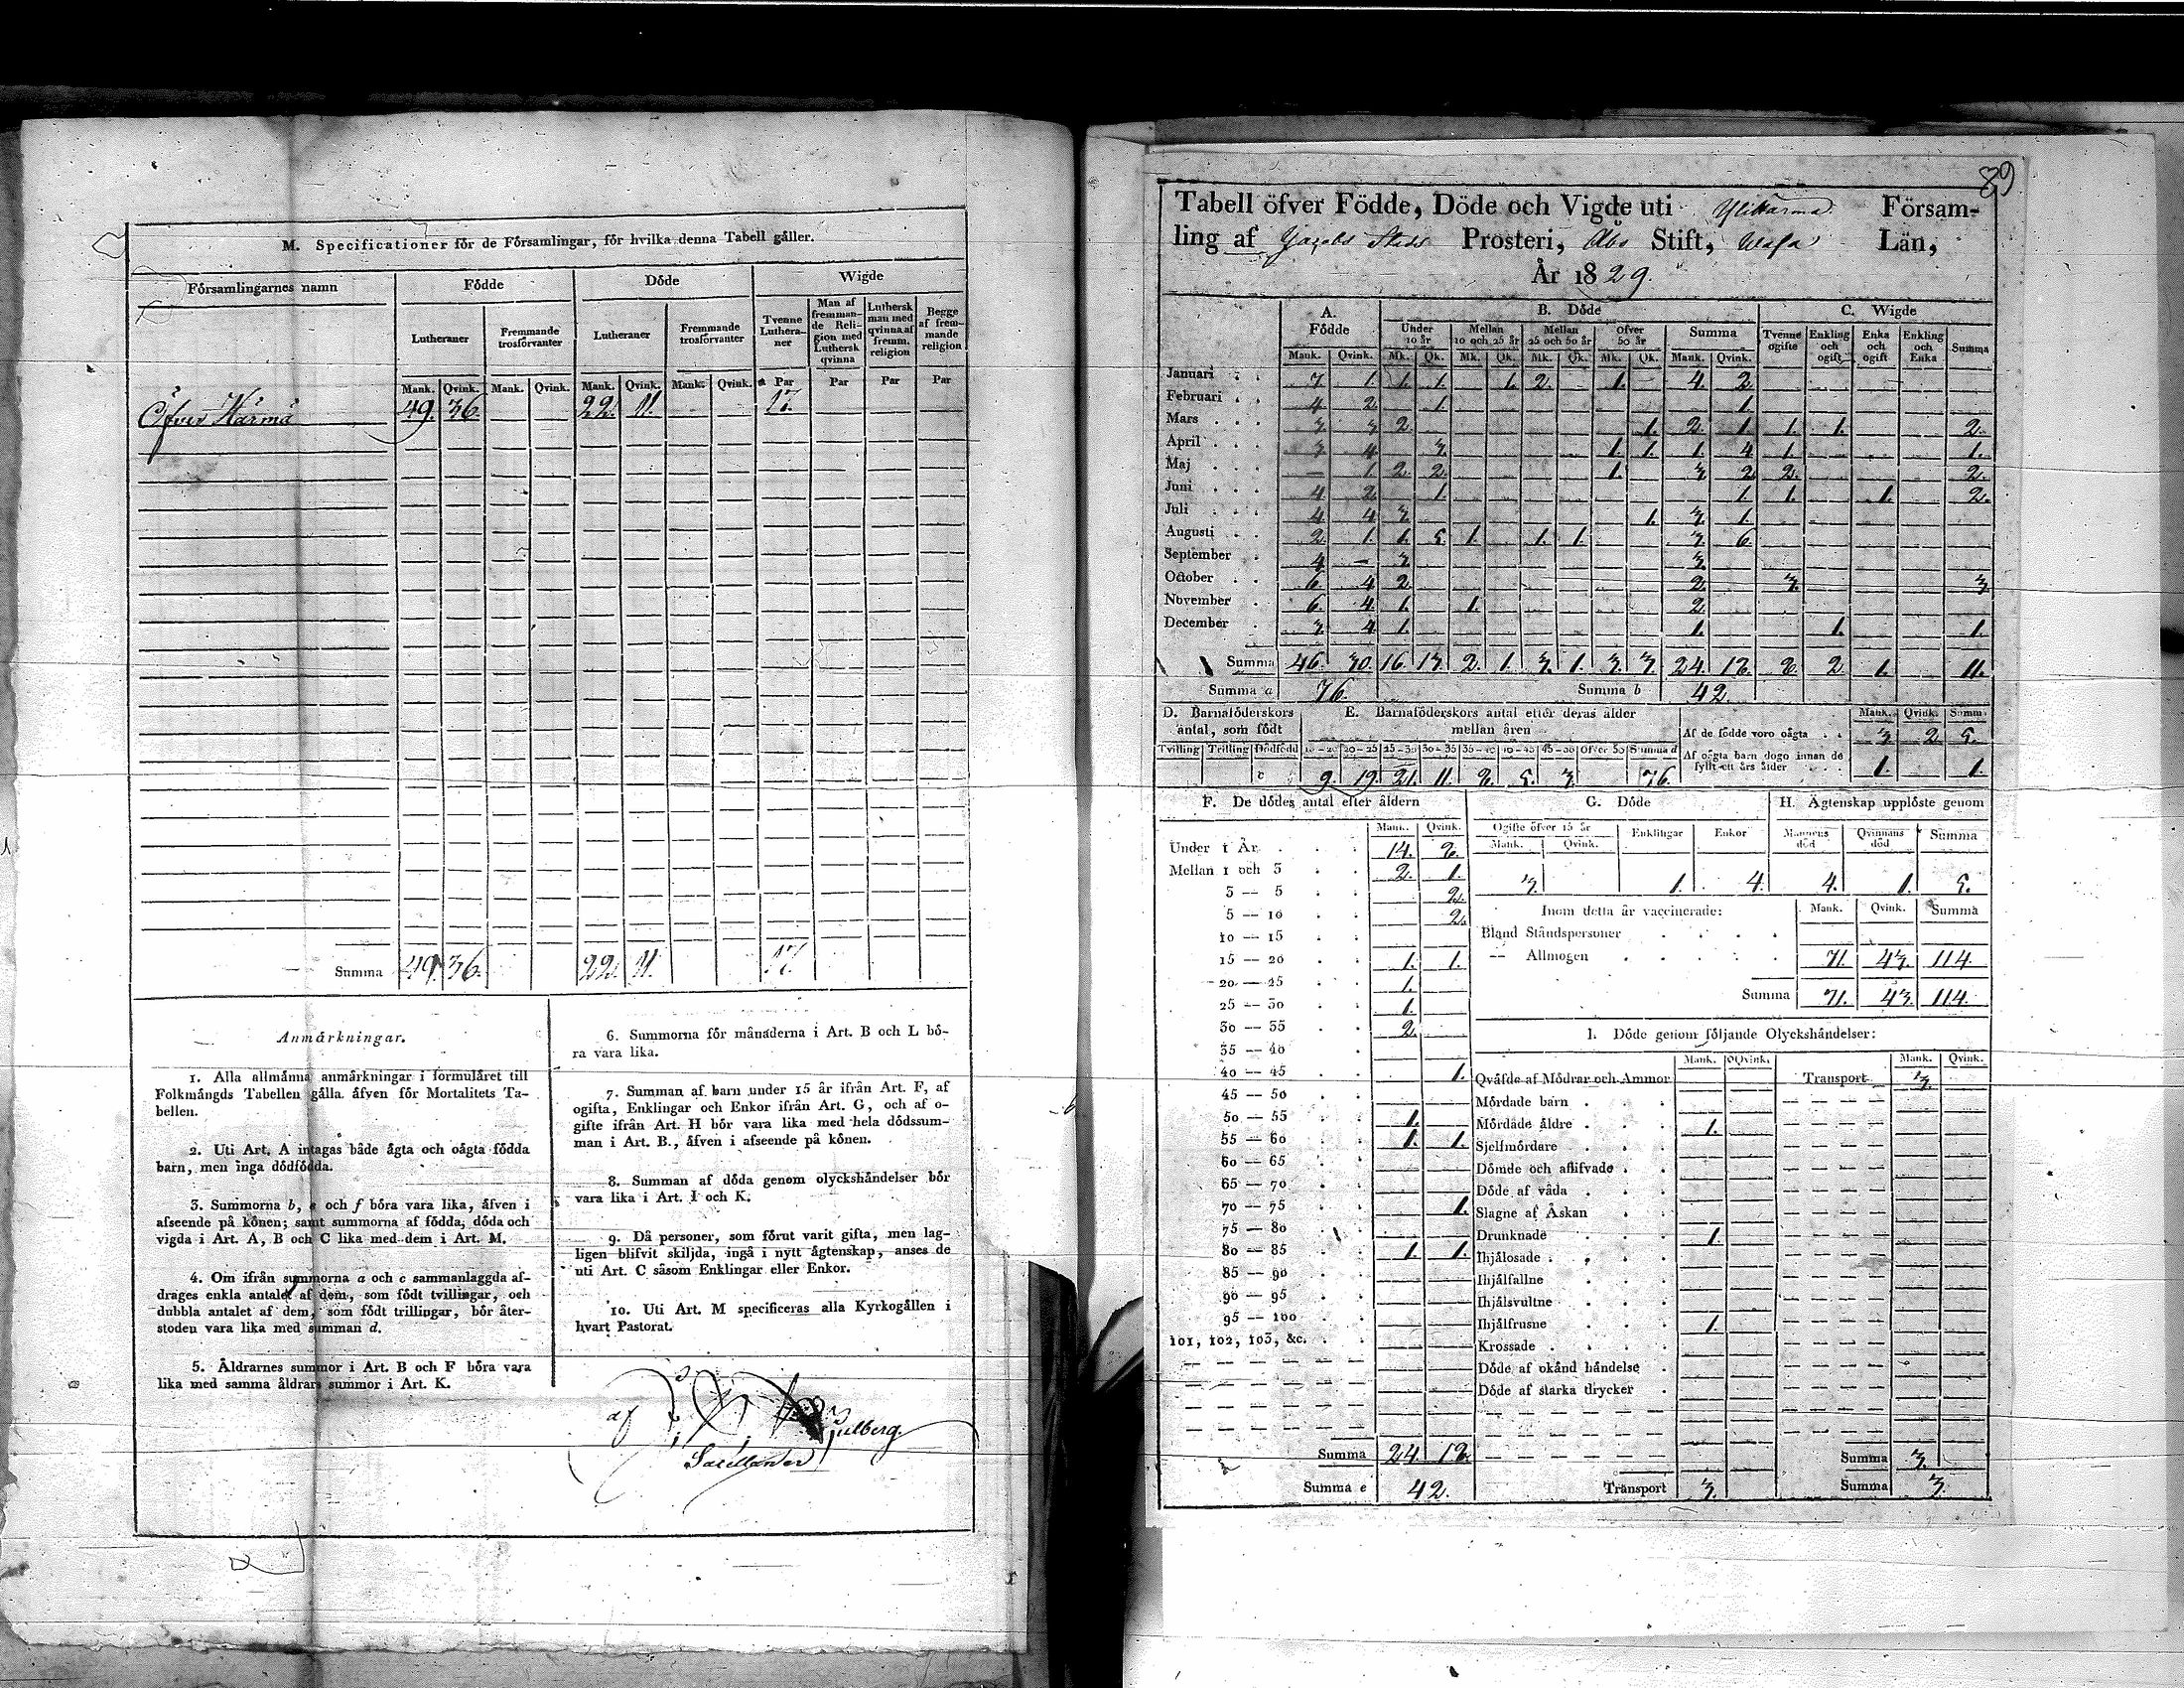 M. Specificationer för de Församlingar, för hvilka denna Tabell gäller.
Församlingarnes namn Födde Döde Wigde
Lutheraner Fremmande trosförvanter Lutheraner Fremmande trosförvanter Tvenne Lutheraner Man af fremmande Religion med Luthersk qvinna Luthersk man med qvinna af fremm. religion Begge af fremmande religion
Mank. Qvink. Mank. Qvink. Mank. Qvink. Mank. Qvink. Par Par Par Par
Öfver Härmä 49. 36. 22. 11. 17.
Summa 49. 36. 22. 11. 17.
Anmärkningar.
1. Alla allmänna anmärkningar i formuläret till
Folkmängds Tabellen gälla äfven för Mortalitets Ta-
bellen.
2. Uti Art. A intagas både ägta och oägta födda
barn, men inga dödfödda.
3. Summorna b, e och f böra vara lika, äfven i
afseende på könen; samt summorna af födda, döda och
vigda i Art. A, B och C lika med dem i Art. M.
4. Om ifrån summorna a och c sammanlaggda af-
drages enkla antalet af dem, som födt tvillingar, och
dubbla antalet af dem, som födt trillingar, bör åter-
stoden vara lika med summan d.
5. Åldrarnes summor i Art. B och F böra vara
lika med samma åldrars summor i Art. K.
6. Summorna för månaderna i Art. B och L bö-
ra vara lika.
7. Summan af barn under 15 år ifrån Art. F, af
ogifta, Enklingar och Enkor ifrån Art. G, och af o-
gifte ifrån Art. H bör vara lika med hela dödssum-
man i Art. B., äfven i afseende på könen.
8. Summan af döda genom olyckshändelser bör
vara lika i Art. I och K.
9. Då personer, som förut varit gifta, men lag-
ligen blifvit skiljda, ingå i nytt ägtenskap, anses de
uti Art. C såsom Enklingar eller Enkor.
10. Uti Art. M specificeras alla Kyrkogällen i
hvart Pastorat.
af
89
Tabell öfver Födde, Döde och Vigde uti Ylihärmä Försam-
ling af Jacobs Stads Prosteri, Åbo Stift, Wasa Län,
År 1829.
A. Födde B. Döde C. Wigde
Under 10 år Mellan 10 och 25 år Mellan 25 och 50 år Öfver 50 år Summa Tvenne ogifte Enkling och ogift Enka och ogift Enkling och Enka Summa
Mank. Qvink. Mk. Qk. Mk. Qk. Mk. Qk. Mk. Qk. Mank. Qvink.
Januari 7 1. 1. 1. 1. 2. 1. 4. 2
Februari 4 2. 1. 1.
Mars 3 3 2. 1. 2. 1. 1. 1. 2.
April 3 4 3. 1. 1. 1. 4 1. 1.
Maj — 1. 2 2. 1. 3 2 2. 2.
Juni 4 2. 1. 1. 1. 1. 2.
Juli 4 4 3. 1. 3. 1.
Augusti 2. 1. 1. 5. 1. 1. 1. 3. 6.
September 4 — 3. 3.
October 6. 4 2. 2. 3. 3
November 6. 4. 1. 1. 2.
December 3. 4 1. 1. 1. 1.
Summa 46. 30. 16. 13. 2. 1. 3. 1. 3. 3. 24. 18. 8. 2 1. 11.
Summa a 76. Summa b 42.
D. Barnaföderskors antal, som födt
Tvilling Trilling Dödfödd
c
E. Barnaföderskors antal efter deras ålder mellan åren
20 – 25 25 – 30 30 – 35 Öfver 50 Summa d
9. 19 21. 11. 8. 5. 3. 76.
Mank. Qvink. Summ.
Af de födde voro oägta 3 2 5.
Af oägta barn dogo innan de fyllt ett års ålder 1. 1.
F. De dödes antal efter åldern
Mank. Qvink.
Under 1 År 14. 8.
Mellan 1 och 3 2. 1.
3 — 5 2.
5 — 10 2.
10 — 15
15 — 20 1. 1.
20 — 25 1.
25 — 30 1.
30 — 35 2.
35 — 40
40 — 45 1.
45 — 50
50 — 55 1.
55 — 60 1. 1.
60 — 65
65 — 70
70 — 75 1.
75 — 80
80 — 85 1. 1.
85 — 90
90 — 95
95 — 100
101, 102, 103, &c.
Summa 24. 18.
Summa e 42.
G. Döde
Ogifte öfver 15 år Enklingar Enkor
Mank. Qvink.
3. 1. 4.
H. Ägtenskap upplöste genom
Mannens död Qvinnans död Summa
4. 1. 5.
Inom detta år vaccinerade: Mank. Qvink. Summa
Bland Ståndspersoner
— Allmogen 71. 43. 114.
Summa 71. 43. 114.
I. Döde genom följande Olyckshändelser:
Mank. Qvink. Mank. Qvink.
Qväfde af Mödrar och Ammor Transport 3.
Mördade barn
Mördade äldre 1.
Sjelfmördare
Dömde och aflifvade
Döde af våda
Slagne af Åskan
Drunknade 1.
Ihjälosade
Ihjälfallne
Ihjälsvultne
Ihjälfrusne 1.
Krossade
Döde af okänd händelse
Döde af starka drycker
Summa 3.
Transport 3. Summa 3.